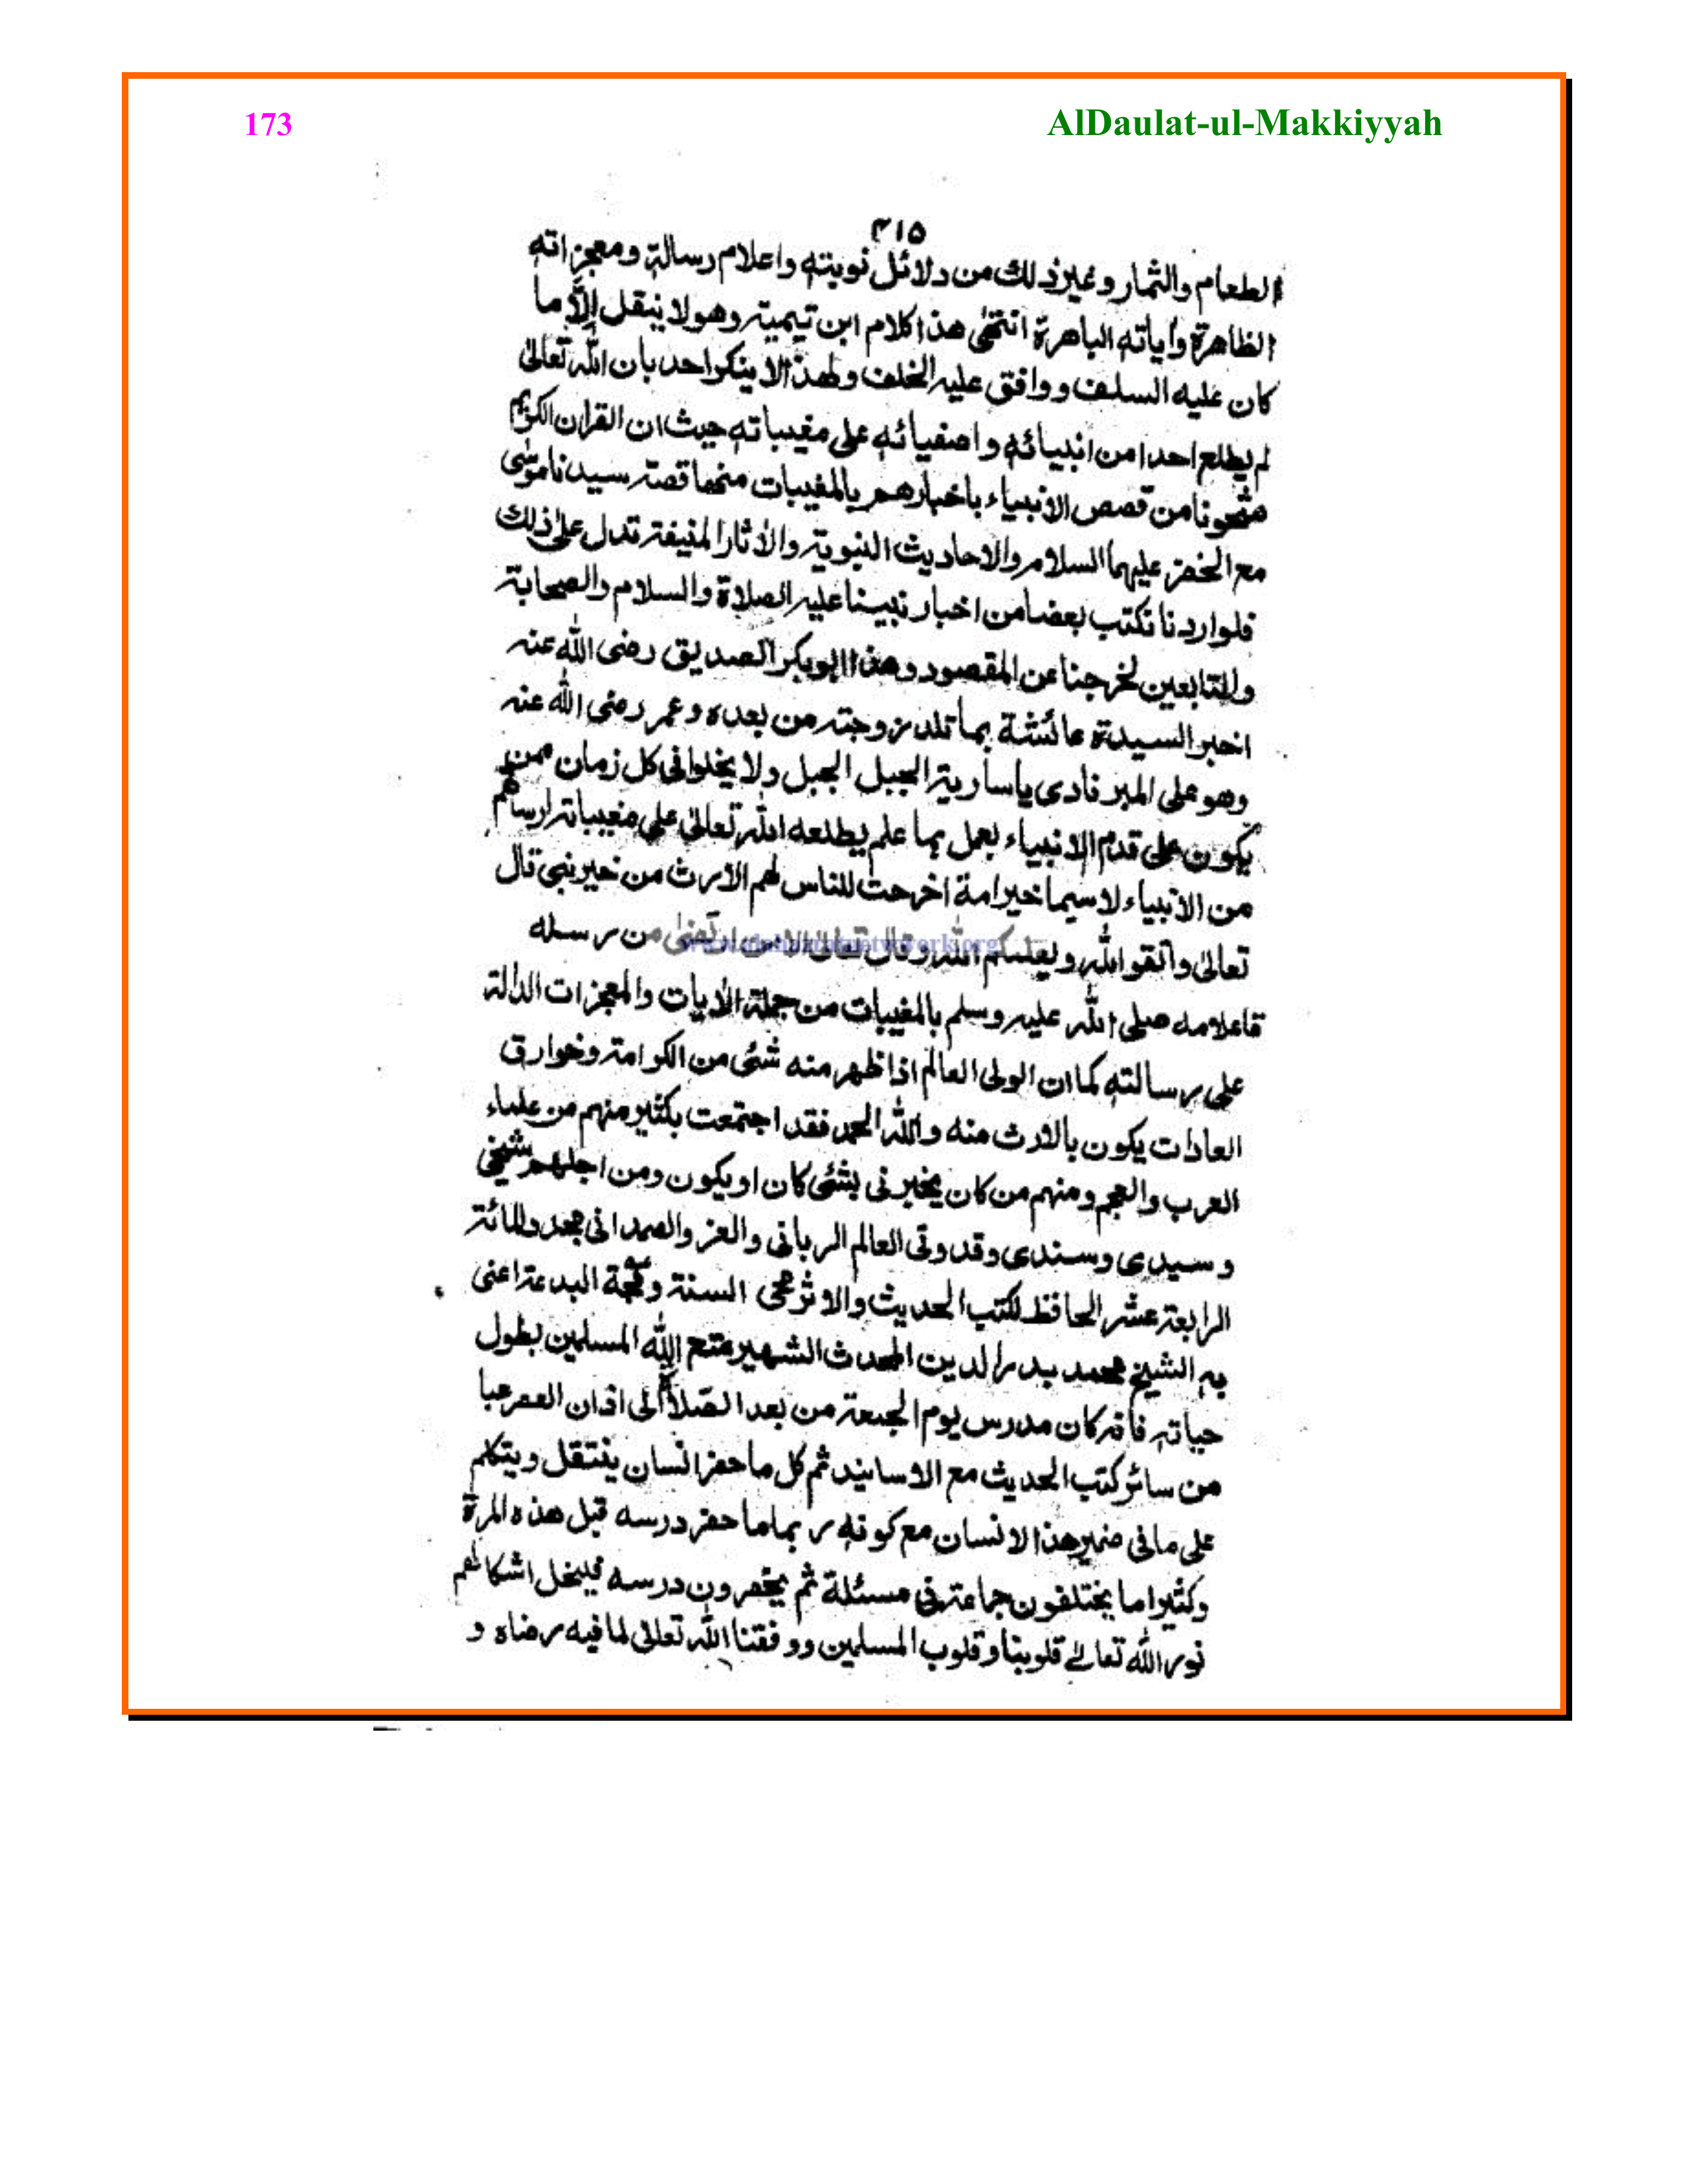 173 AlDaulat-ul-Makkiyyah
٣١٥
الطعام والثمار وغيرذلك من دلائل نوبيته واعلام رسالة ومعجزاته
الظاهرة وأياته الباهرة انتهٰى هذا كلام ابن تيمية وهولا ينقل الّاما
كان عليه السلف ووافق عليه الخلف ولهذا لاينكراحد بان اللّٰه تعالىٰ
لم يطلع احدا من انبيائه واصفيائه على مغيباته حيث ان القراٰن الكريم
مشحونا من قصص الانبياء باخبارهم بالمغيبات منها قصة سيدنا موسٰى
مع الخضر عليهما السلام والاحاديث النبوية والاٰثار المنيفة تدل علىٰ ذلك
فلواردنا نكتب بعضا من اخبار نبينا عليه الصلاة والسلام والصحابة
والتابعين لخرجنا عن المقصود وهذا ابوبكر الصديق رضى اللّٰه عنه
اخبر السيدة عائشة بما تلد زوجته من بعده وعمر رضى اللّٰه عنه
وهو على المبر نادى ياسارية الجبل الجبل ولا يخلوا فى كل زمان ممن
يكون على قدم الانبياء يعمل بما علم يطلعه اللّٰه تعالىٰ على مغيباته
من الانبياء لاسيما خيرامة اخرحت للناس لهم الارث من خيرنبى قال
تعالىٰ واتقوا اللّٰه ويعلمكم اللّٰه وقال تعالىٰ الا من ارتضىٰ من رسله
فاعلامه صلى اللّٰه عليه وسلم بالمغيبات من جملة الاٰيات والمعجزات الدالة
على رسالته كما ان الولى العالم اذا ظهر منه شئى من الكرامة وخوارق
العادات يكون بالارث منه وللّٰه الحمد فقد اجتمعت بكثير منهم من علماء
العرب والعجم ومنهم من كان يخبرنى بشئى كان اويكون ومن اجلهم شيخى
وسيدى وسندى وقدوتى العالم الربانى والعز والصمدانى مجدد المائة
الرابعة عشر الحافظ لكتب الحديث والاثر محى السنة و البدعة اعنى
به الشيخ محمد بدرالدين المحدث الشهير متع اللّٰه المسلمين بطول
حياته فانه كان مدرس يوم الجمعة من بعد الصّلاة الى اذان العصر
من سائر كتب الحديث مع الاسانيد ثم كل ما حضر انسان ينتقل ويتكلم
على ما فى ضمير هذا الانسان مع كونه ربما ما حضر درسه قبل هذه المرة
وكثيرا ما يختلفون جماعة فى مسئلة ثم يحضرون درسه فينحل اشكالهم
نور اللّٰه تعالےٰ قلوبنا وقلوب المسلمين ووفقنا اللّٰه تعالىٰ لما فيه رضاه و